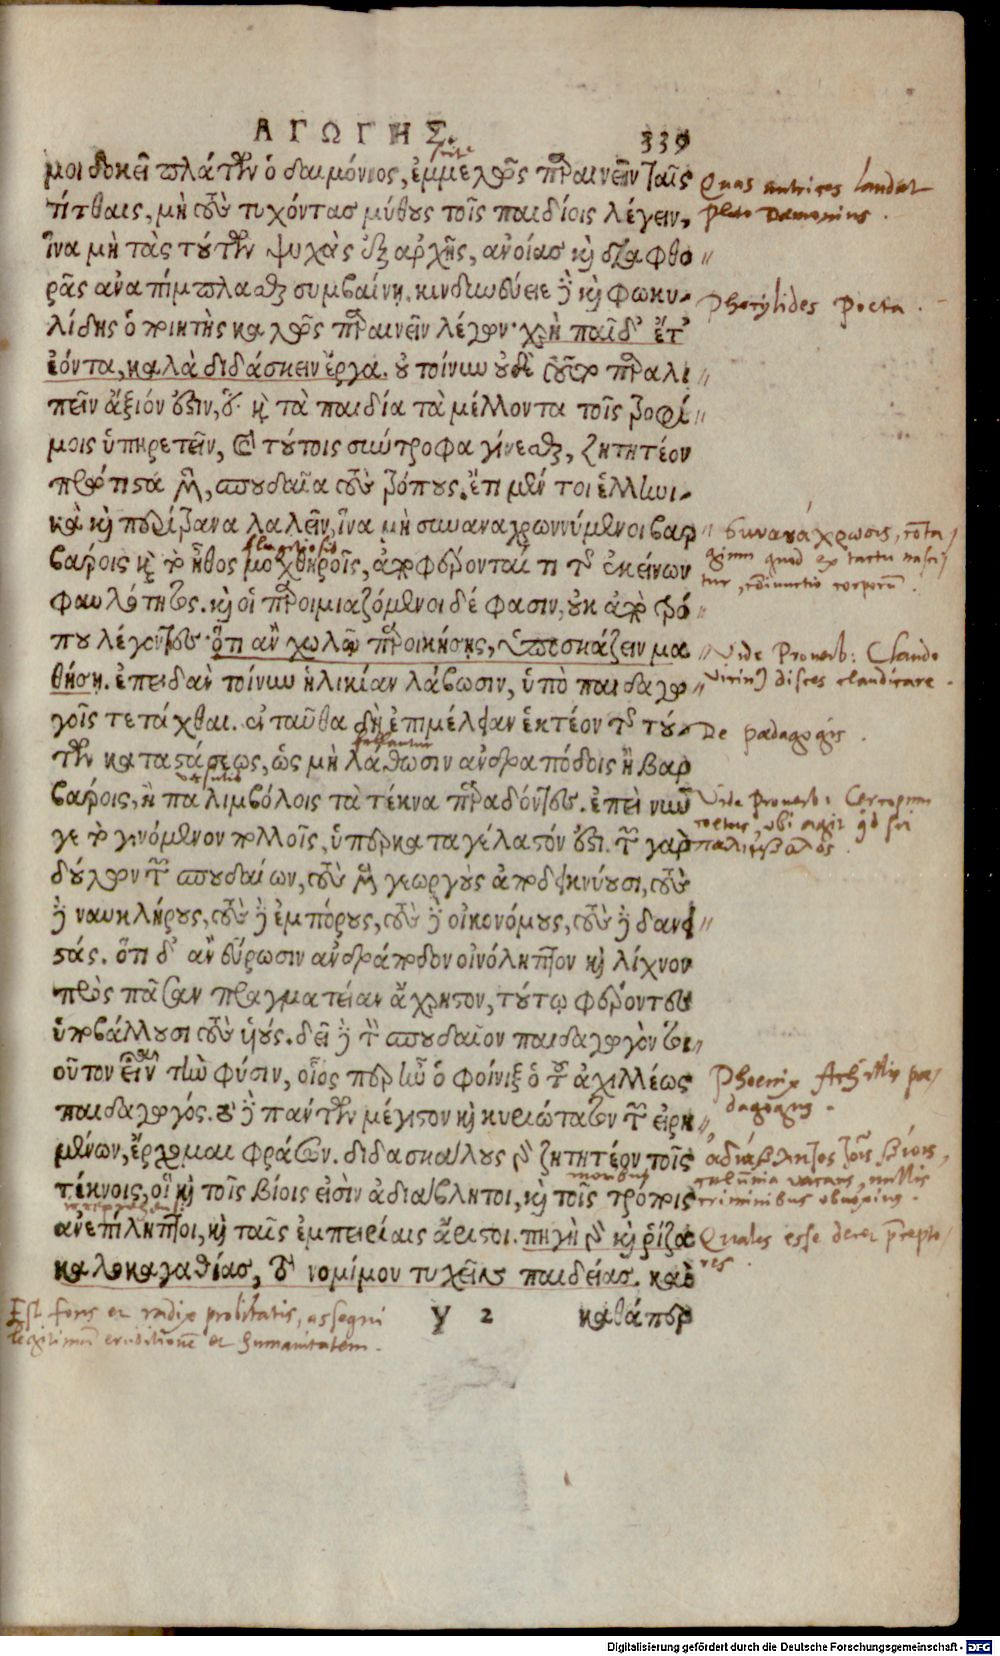 ΑΓΩΓΗΣ. 339
μοι δοκεῖ πλάτων ὁ δαιμόνιος, ἐμμελῶς παραινεῖν ταῖς
τίτθαις, μὴ τοὺς τυχόντας μύθους τοῖς παιδίοις λέγειν,
ἵνα μὴ τὰς τούτων ψυχὰς ἐξ ἀρχῆς, ἀνοίας καὶ διαφθο
ρᾶς ἀναπίμπλασθαι συμβαίνῃ. κινδυνεύει δὲ καὶ φωκυ-
λίδης ὁ ποιητὴς καλῶς παραινεῖν λέγων· χρὴ παῖδ' ἔτ'
ἐόντα, καλὰ διδάσκειν ἔργα. οὐ τοίνυν οὐδὲ τοῦτο παραλι
πεῖν ἄξιόν ἐστιν, ὅτι καὶ τὰ παιδία τὰ μέλλοντα τοῖς τροφί
μοις ὑπηρετεῖν, καὶ τούτοις σύντροφα γίνεσθαι, ζητητέον
πρώτιστα μὲν, σπουδαῖα τοὺς τρόπους. ἔτι μέν τοι ἑλληνι-
κὰ καὶ περίτρανα λαλεῖν, ἵνα μὴ συναναχρωννύμενοι βαρ
βάροις καὶ τὸ ἦθος μοχθηροῖς, ἀποφέρωνταί τι τῆς ἐκείνων
φαυλότητος. καὶ οἱ παροιμιαζόμενοι δέ φασιν, οὐκ ἀπὸ τρό
που λέγοντες· ὅτι ἂν χωλῷ παροικήσῃς, ὑποσκάζειν μα
θήσῃ. ἐπειδὰν τοίνυν ἡλικίαν λάβωσιν, ὑπὸ παιδαγω
γοῖς τετάχθαι. ἐνταῦθα δὴ ἐπιμέλειαν ἑκτέον τῆς τού-
των καταστάσεως, ὡς μὴ λάθωσιν ἀνδραπόδοις ἢ βαρ
βάροις, ἢ παλιμβόλοις τὰ τέκνα παραδόντες. ἐπεὶ νῦν
γε τὸ γινόμενον πολλοῖς, ὑπερκαταγέλαστόν ἐστι. τῶν γὰρ
δούλων τῶν σπουδαίων, τοὺς μὲν γεωργοὺς ἀποδεικνύουσι, τοὺς
δὲ ναυκλήρους, τοὺς δὲ ἐμπόρους, τοὺς δὲ οἰκονόμους, τοὺς δὲ δανει
στάς. ὅτι δ' ἂν εὕρωσιν ἀνδράποδον οἰνόληπτον καὶ λίχνον
πρὸς πᾶσαν πραγματείαν ἄχρηστον, τούτῳ φέροντες
ὑποβάλλουσι τοὺς υἱούς. δεῖ δὲ τὸν σπουδαῖον παιδαγωγὸν τοι
οῦτον εἶναι τὴν φύσιν, οἷος περ ἦν ὁ φοίνιξ ὁ τοῦ ἀχιλλέως
παιδαγωγός. τὸ δὲ πάντων μέγιστον καὶ κυριώτατον τῶν εἰρη
μένων, ἔρχομαι φράσων. διδασκάλους γὰρ ζητητέον τοῖς
τέκνοις, οἳ καὶ τοῖς βίοις εἰσὶν ἀδιάβλητοι, καὶ τοῖς τρόποις
ἀνεπίληπτοι, καὶ ταῖς ἐμπειρίαις ἄριστοι. πηγὴ γὰρ καὶ ῥίζα
καλοκαγαθίας, τὸ νομίμου τυχεῖν παιδείας. καὶ
y 2 καθάπερ
Quas nutrices laudat
Plato Damonius.
Phocylides Poeta.
Vide Proverb: Claudo
vicin9 disces claudicare.
De padagogis.
Vide Proverb: Cercopum
coetus, ubi
παλίμβολος.
Phoenix Achillis pæ/
dagogus.
ἀδιάβλητος τοῖς βίοις,
calumnia vacans, nullis
criminibus obnoxius.
Quales esse debeāt præpto/
res.
moribus
Est fons et radix probitatis, assequi
legitimam eruditionē et humanitatem.
Digitalisierung gefördert durch die Deutsche Forschungsgemeinschaft - DFG